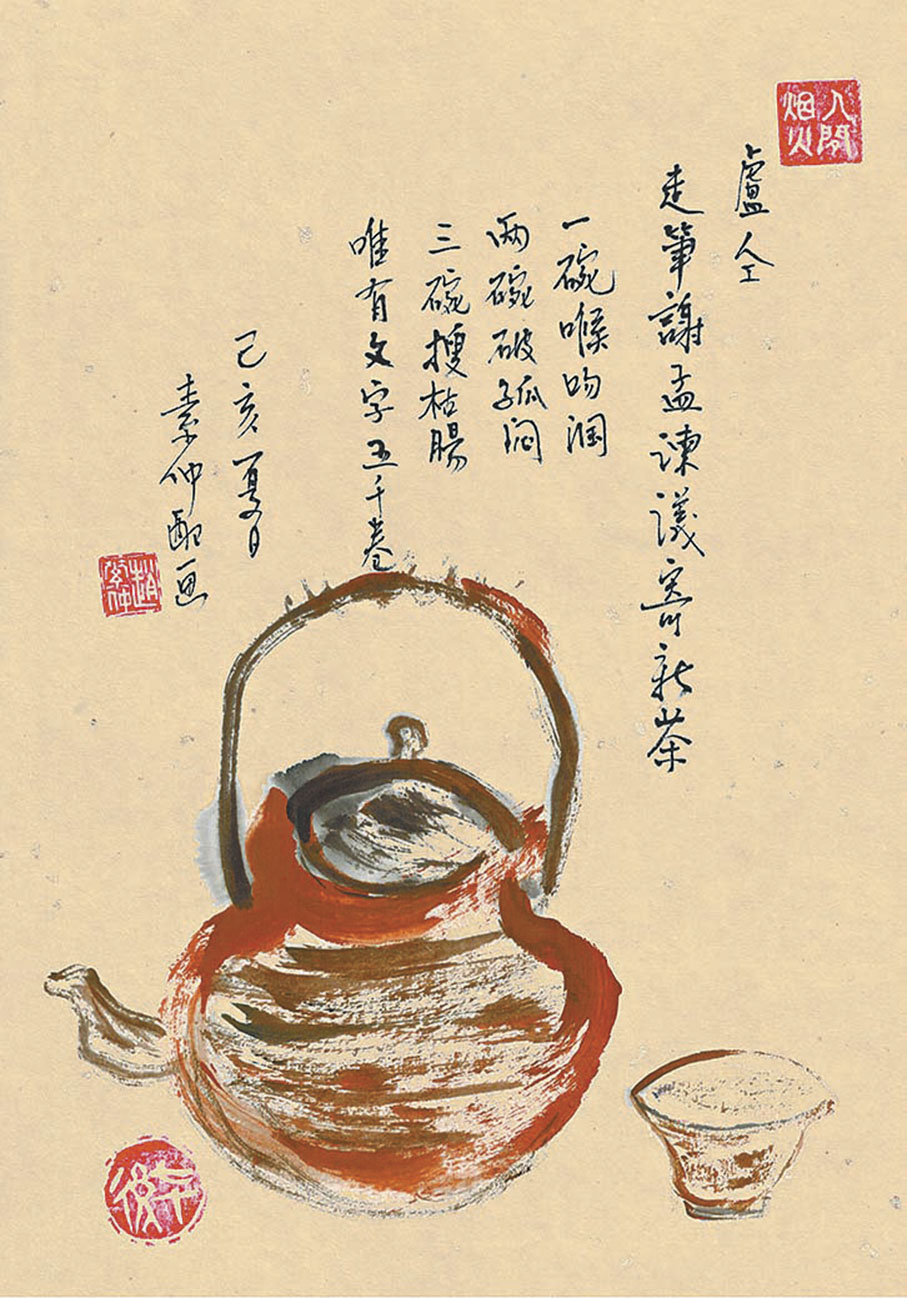 人間烟火
盧仝
走筆謝孟諫議寄新茶
一碗喉吻潤
两碗破孤悶
三碗搜枯腸
唯有文字五千卷
己亥夏日
素仲配画
趙素仲